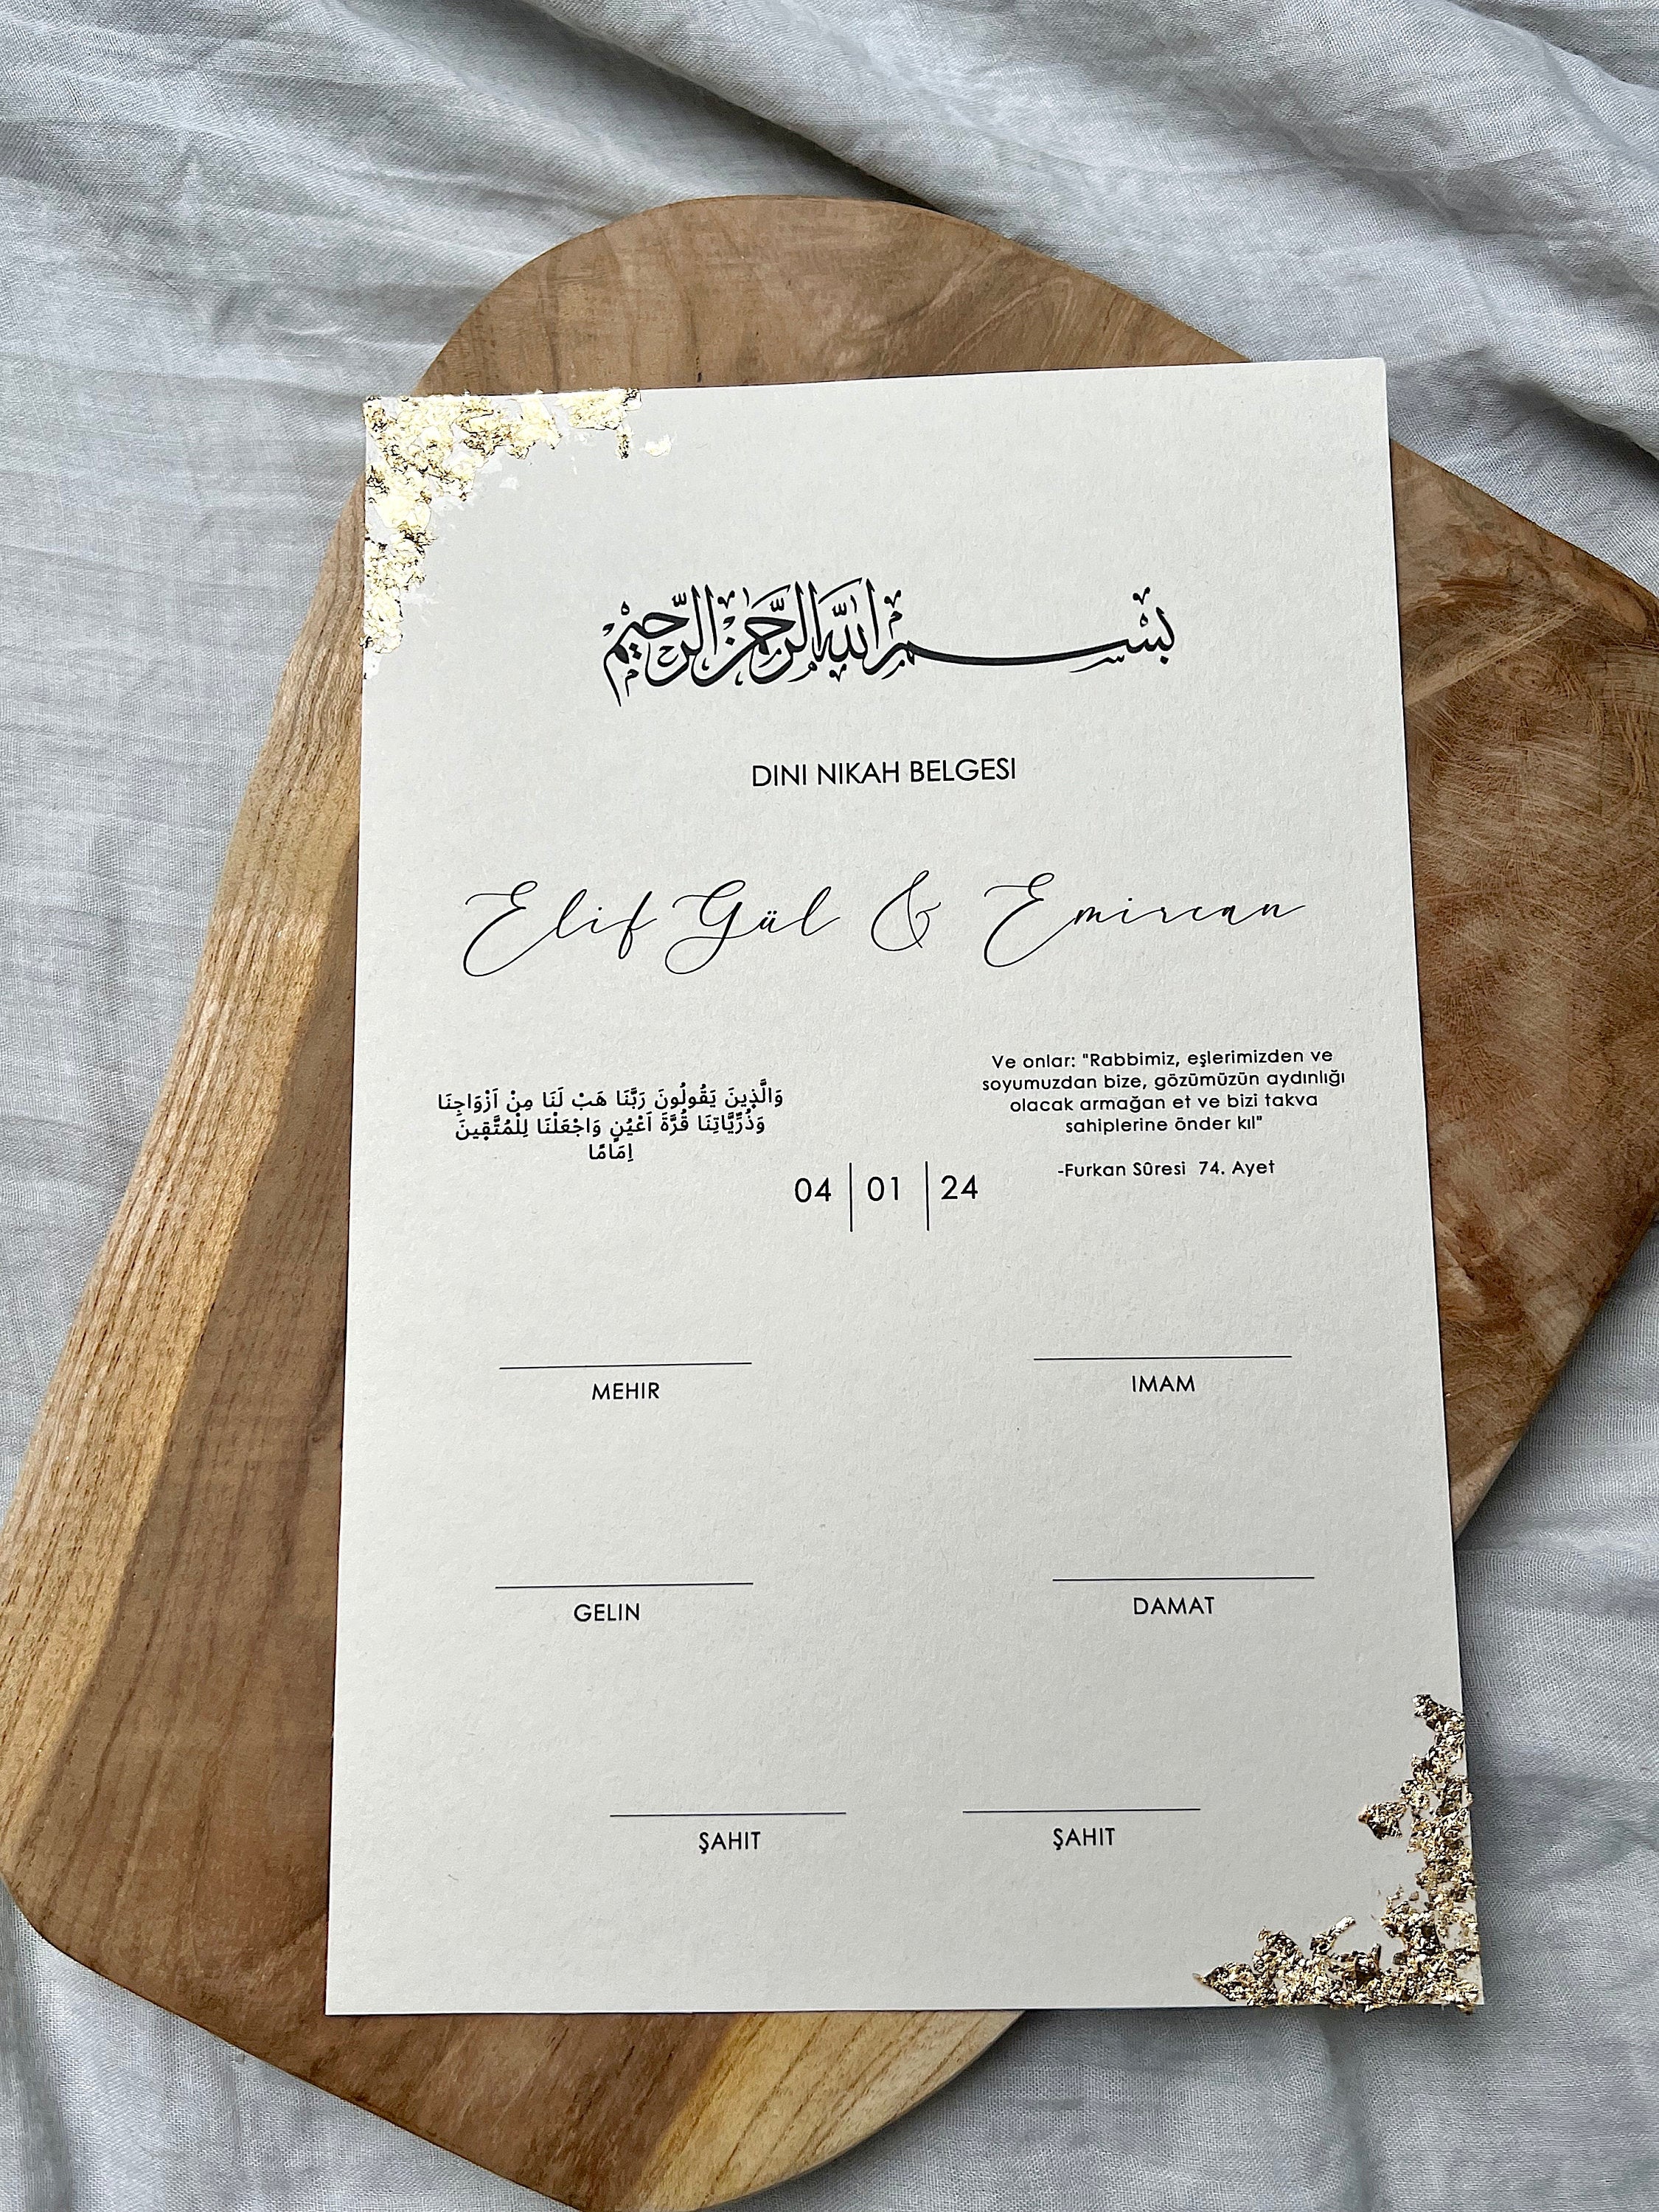 بِسْمِ اللَّهِ الرَّحْمَنِ الرَّحِيمِ
DINI NIKAH BELGESI
Elif Gül & Emircan
وَالَّذ۪ينَ يَقُولُونَ رَبَّنَا هَبْ لَنَا مِنْ اَزْوَاجِنَا
وَذُرِّيَّاتِنَا قُرَّةَ اَعْيُنٍ وَاجْعَلْنَا لِلْمُتَّق۪ينَ
اِمَامًا
Ve onlar: "Rabbimiz, eşlerimizden ve
soyumuzdan bize, gözümüzün aydınlığı
olacak armağan et ve bizi takva
sahiplerine önder kıl"
-Furkan Sûresi 74. Ayet
04 | 01 | 24
MEHIR
IMAM
GELIN
DAMAT
ŞAHIT
ŞAHIT